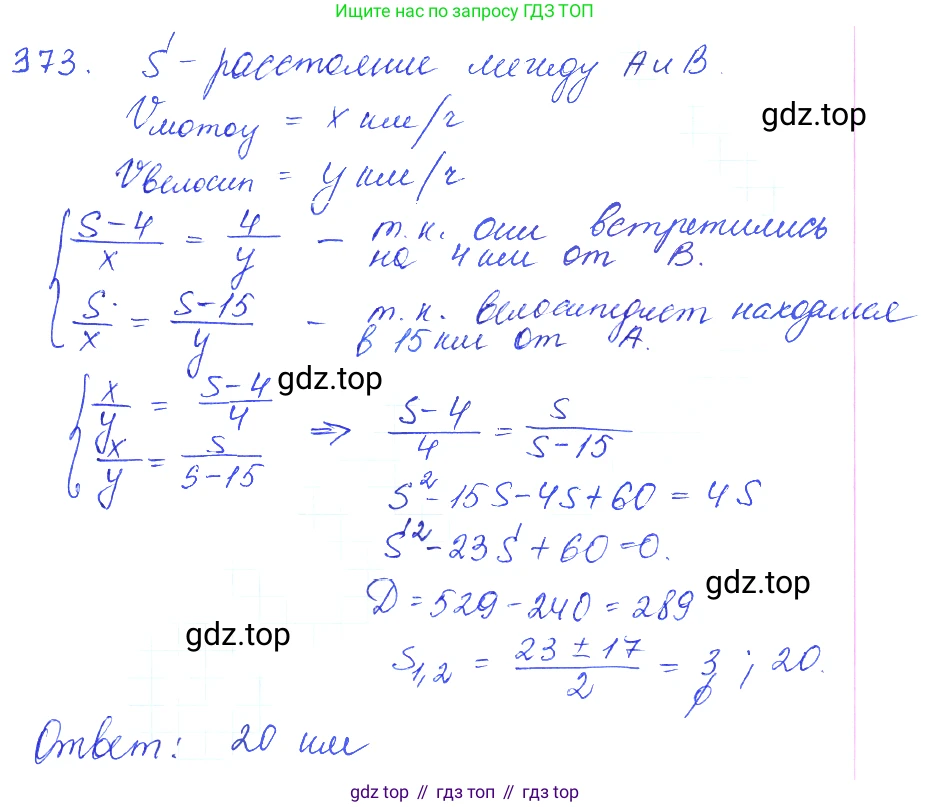 Ищите нас по запросу ГДЗ ТОП
373. S - расстояние между A и B.
Vмотоц = x км/ч
gdz.top
Vвелосип = y км/ч
{ (S-4)/x = 4/y - т.к. они встретились
на 4 км от B.
S/x = (S-15)/y - т.к. велосипедист находился
в 15 км от A.
gdz.top
{ x/y = (S-4)/4
x/y = S/(S-15) => (S-4)/4 = S/(S-15)
S² - 15S - 4S + 60 = 4S
S² - 23S + 60 = 0.
gdz.top
D = 529 - 240 = 289
gdz.top
S1,2 = (23 ± 17)/2 = 3 ; 20.
Ответ: 20 км
gdz.top // гдз топ // гдз top